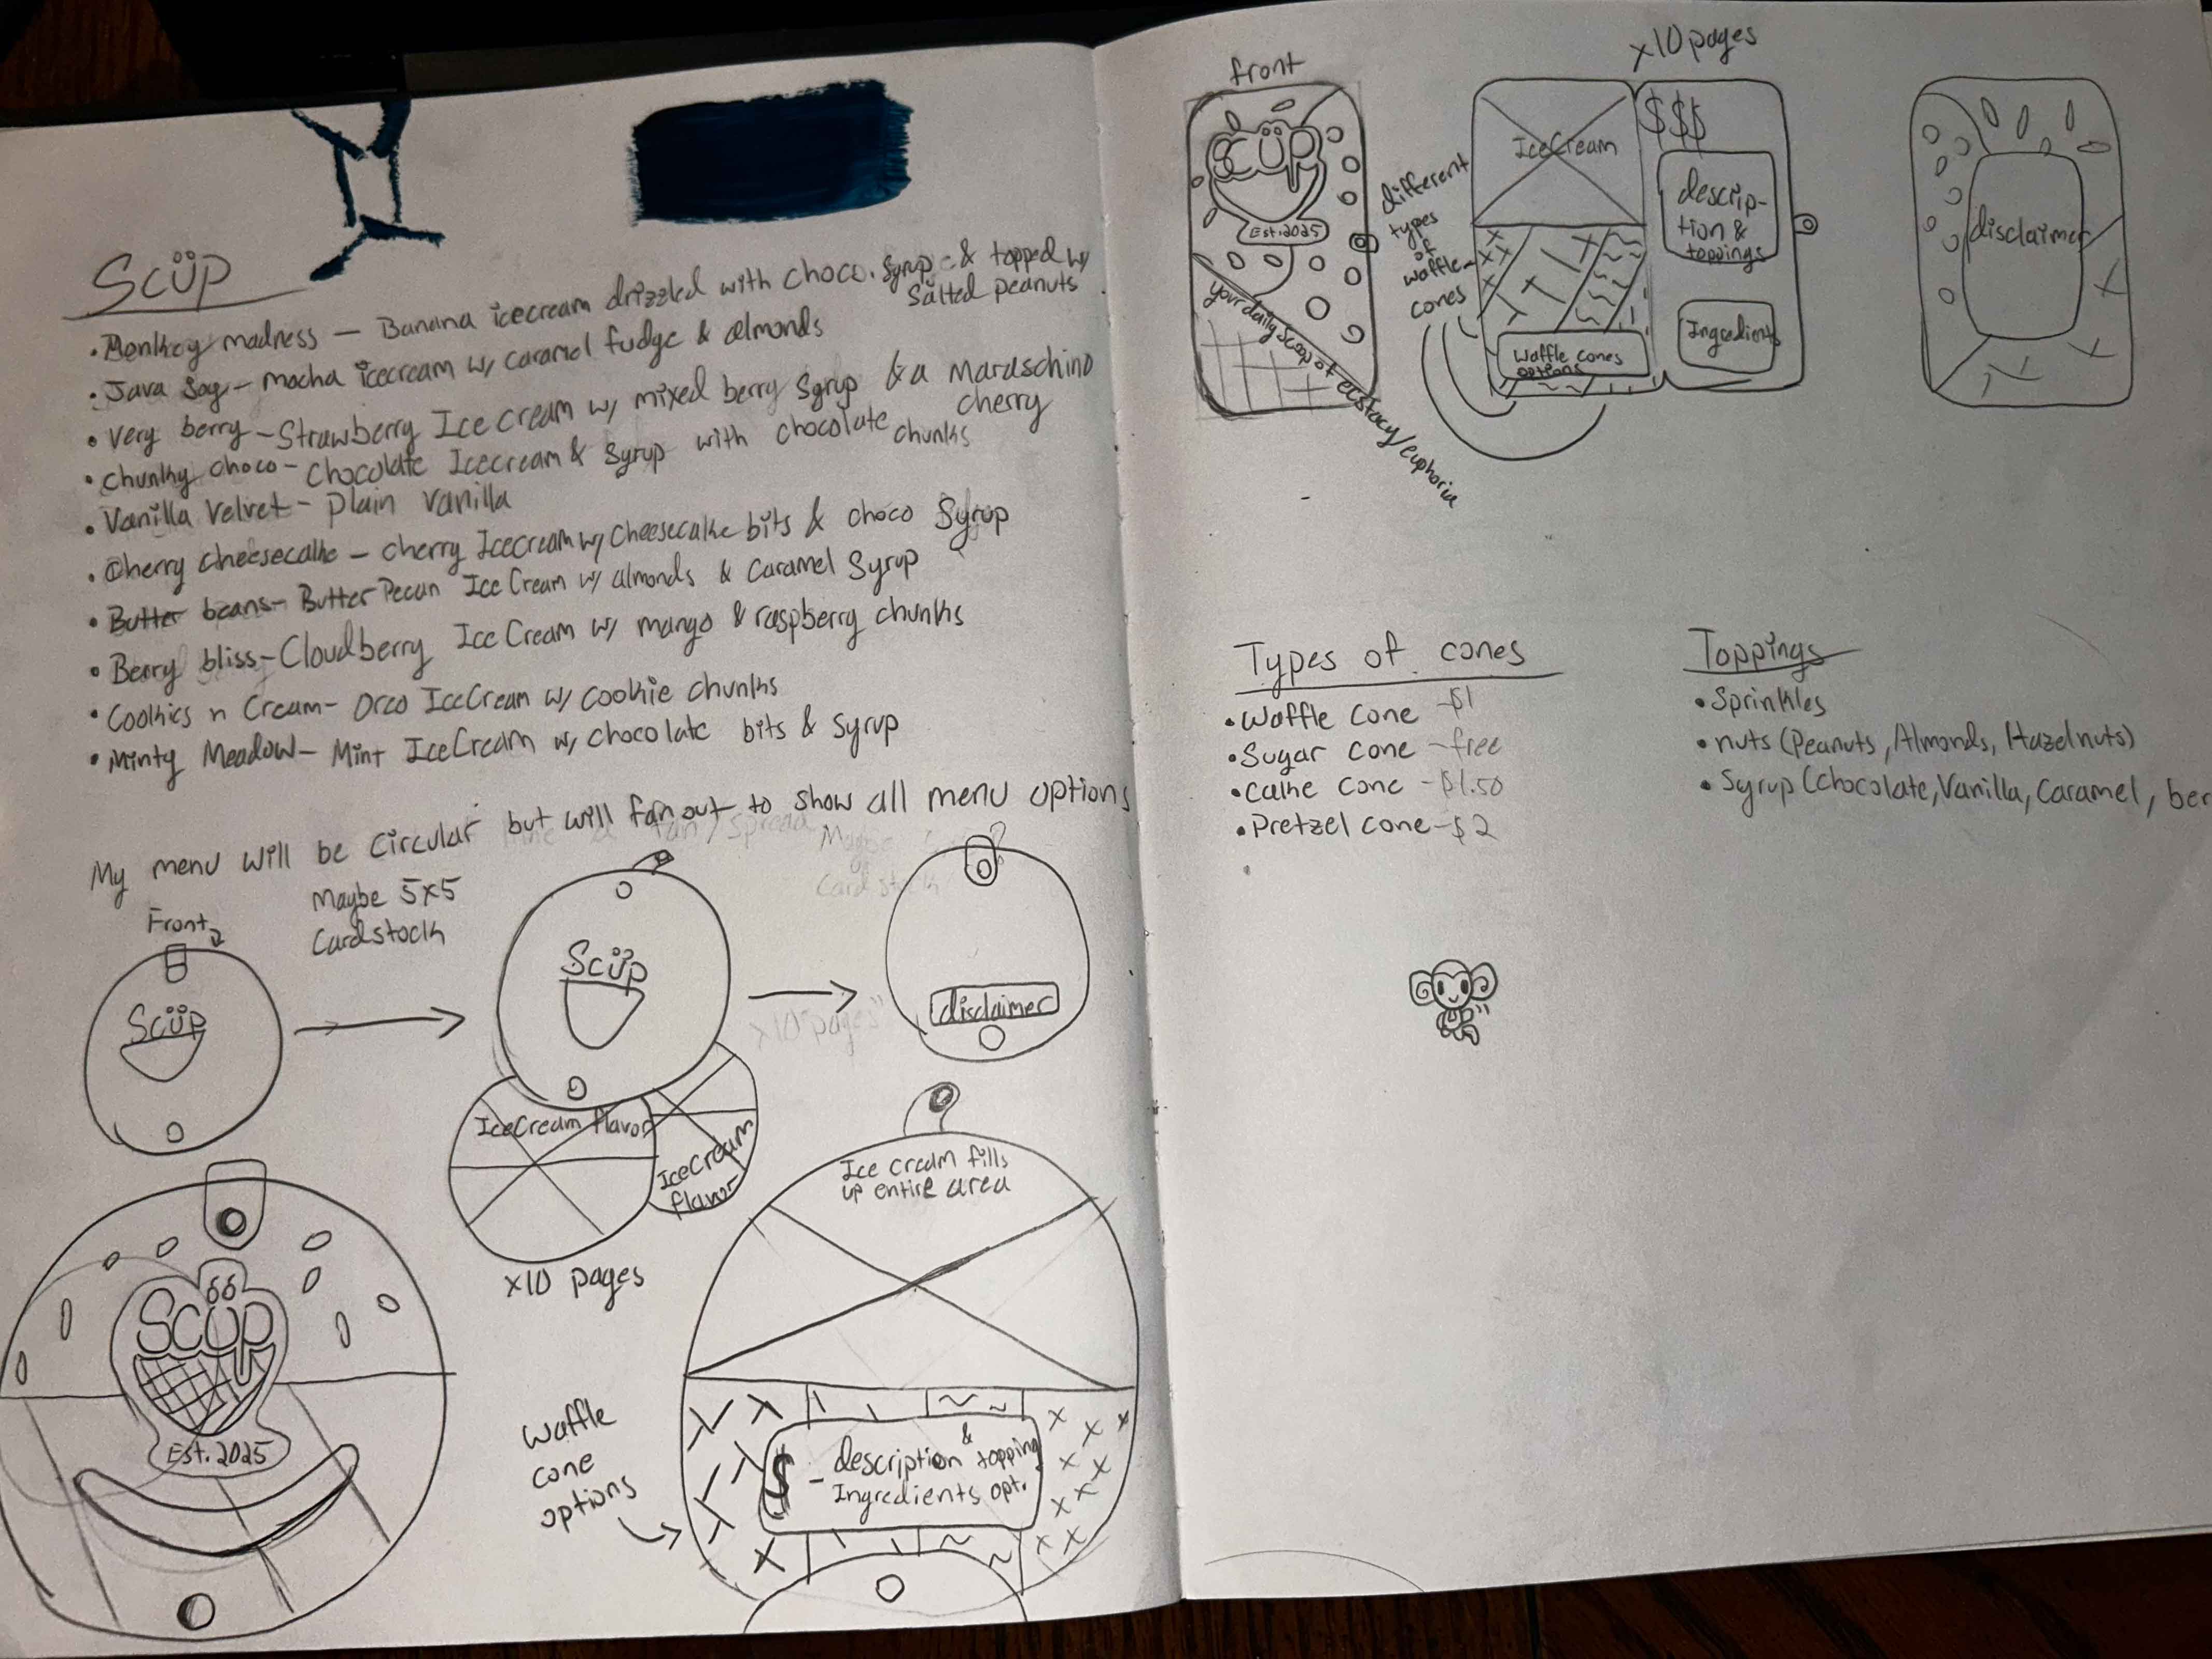 Scüp
• Monkey madness — Banana icecream drizzled with choco. syrup & topped w/
salted peanuts
• Java Joy — mocha icecream w/ caramel fudge & almonds
• Very berry — Strawberry Ice cream w/ mixed berry syrup & a maraschino
cherry
• Chunky choco — Chocolate Icecream & syrup with chocolate chunks
• Vanilla Velvet — plain vanilla
• Cherry cheesecake — cherry Icecream w/ Cheesecake bits & choco syrup
• Butter beans — Butter Pecan Ice Cream w/ almonds & Caramel Syrup
• Berry bliss — Cloudberry Ice Cream w/ mango & raspberry chunks
• Cookies n Cream — Oreo IceCream w/ cookie chunks
• Minty Meadow — Mint IceCream w/ chocolate bits & syrup
My menu will be circular but will fan out to show all menu options
Maybe 5x5
Cardstock
Maybe
Cardstock
Front
Scüp
Scüp
disclaimer
x10 pages
IceCream flavor
IceCream
flavor
x10 pages
Scüp
Est. 2025
Ice cream fills
up entire area
Waffle
cone
options
$ - description & topping
Ingredients opt.
front
Scüp
Est. 2025
your daily scoop of ecstacy/euphoria
different
types
of
waffle
cones
x10 pages
IceCream
$$$
descrip-
tion &
toppings
Ingredients
Waffle cones
options
disclaimer
Types of cones
• Waffle cone - $1
• Sugar cone - free
• Cake cone - $1.50
• Pretzel cone - $2
Toppings
• Sprinkles
• nuts (Peanuts, Almonds, Hazelnuts)
• Syrup (Chocolate, Vanilla, Caramel, ber